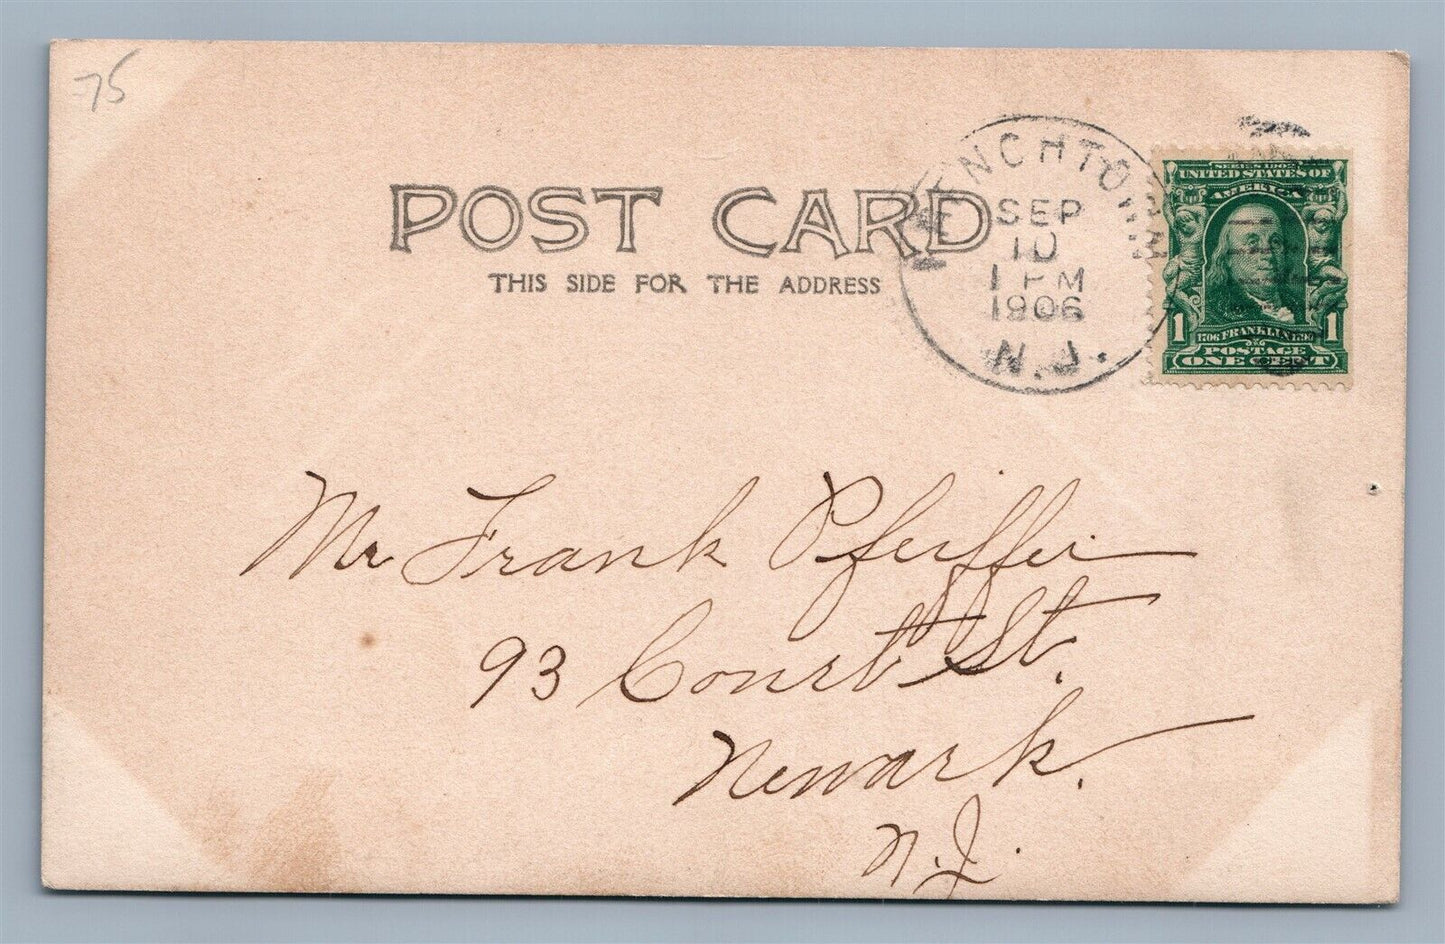 75
POST CARD
THIS SIDE FOR THE ADDRESS
FRENCHTOWN
SEP
10
1 PM
1906
N.J.
SERIES 1902
UNITED STATES OF
AMERICA
1 1
1706 FRANKLIN 1790
POSTAGE
ONE CENT
Mr Frank Pfeiffer
93 Court St.
Newark.
N.J.